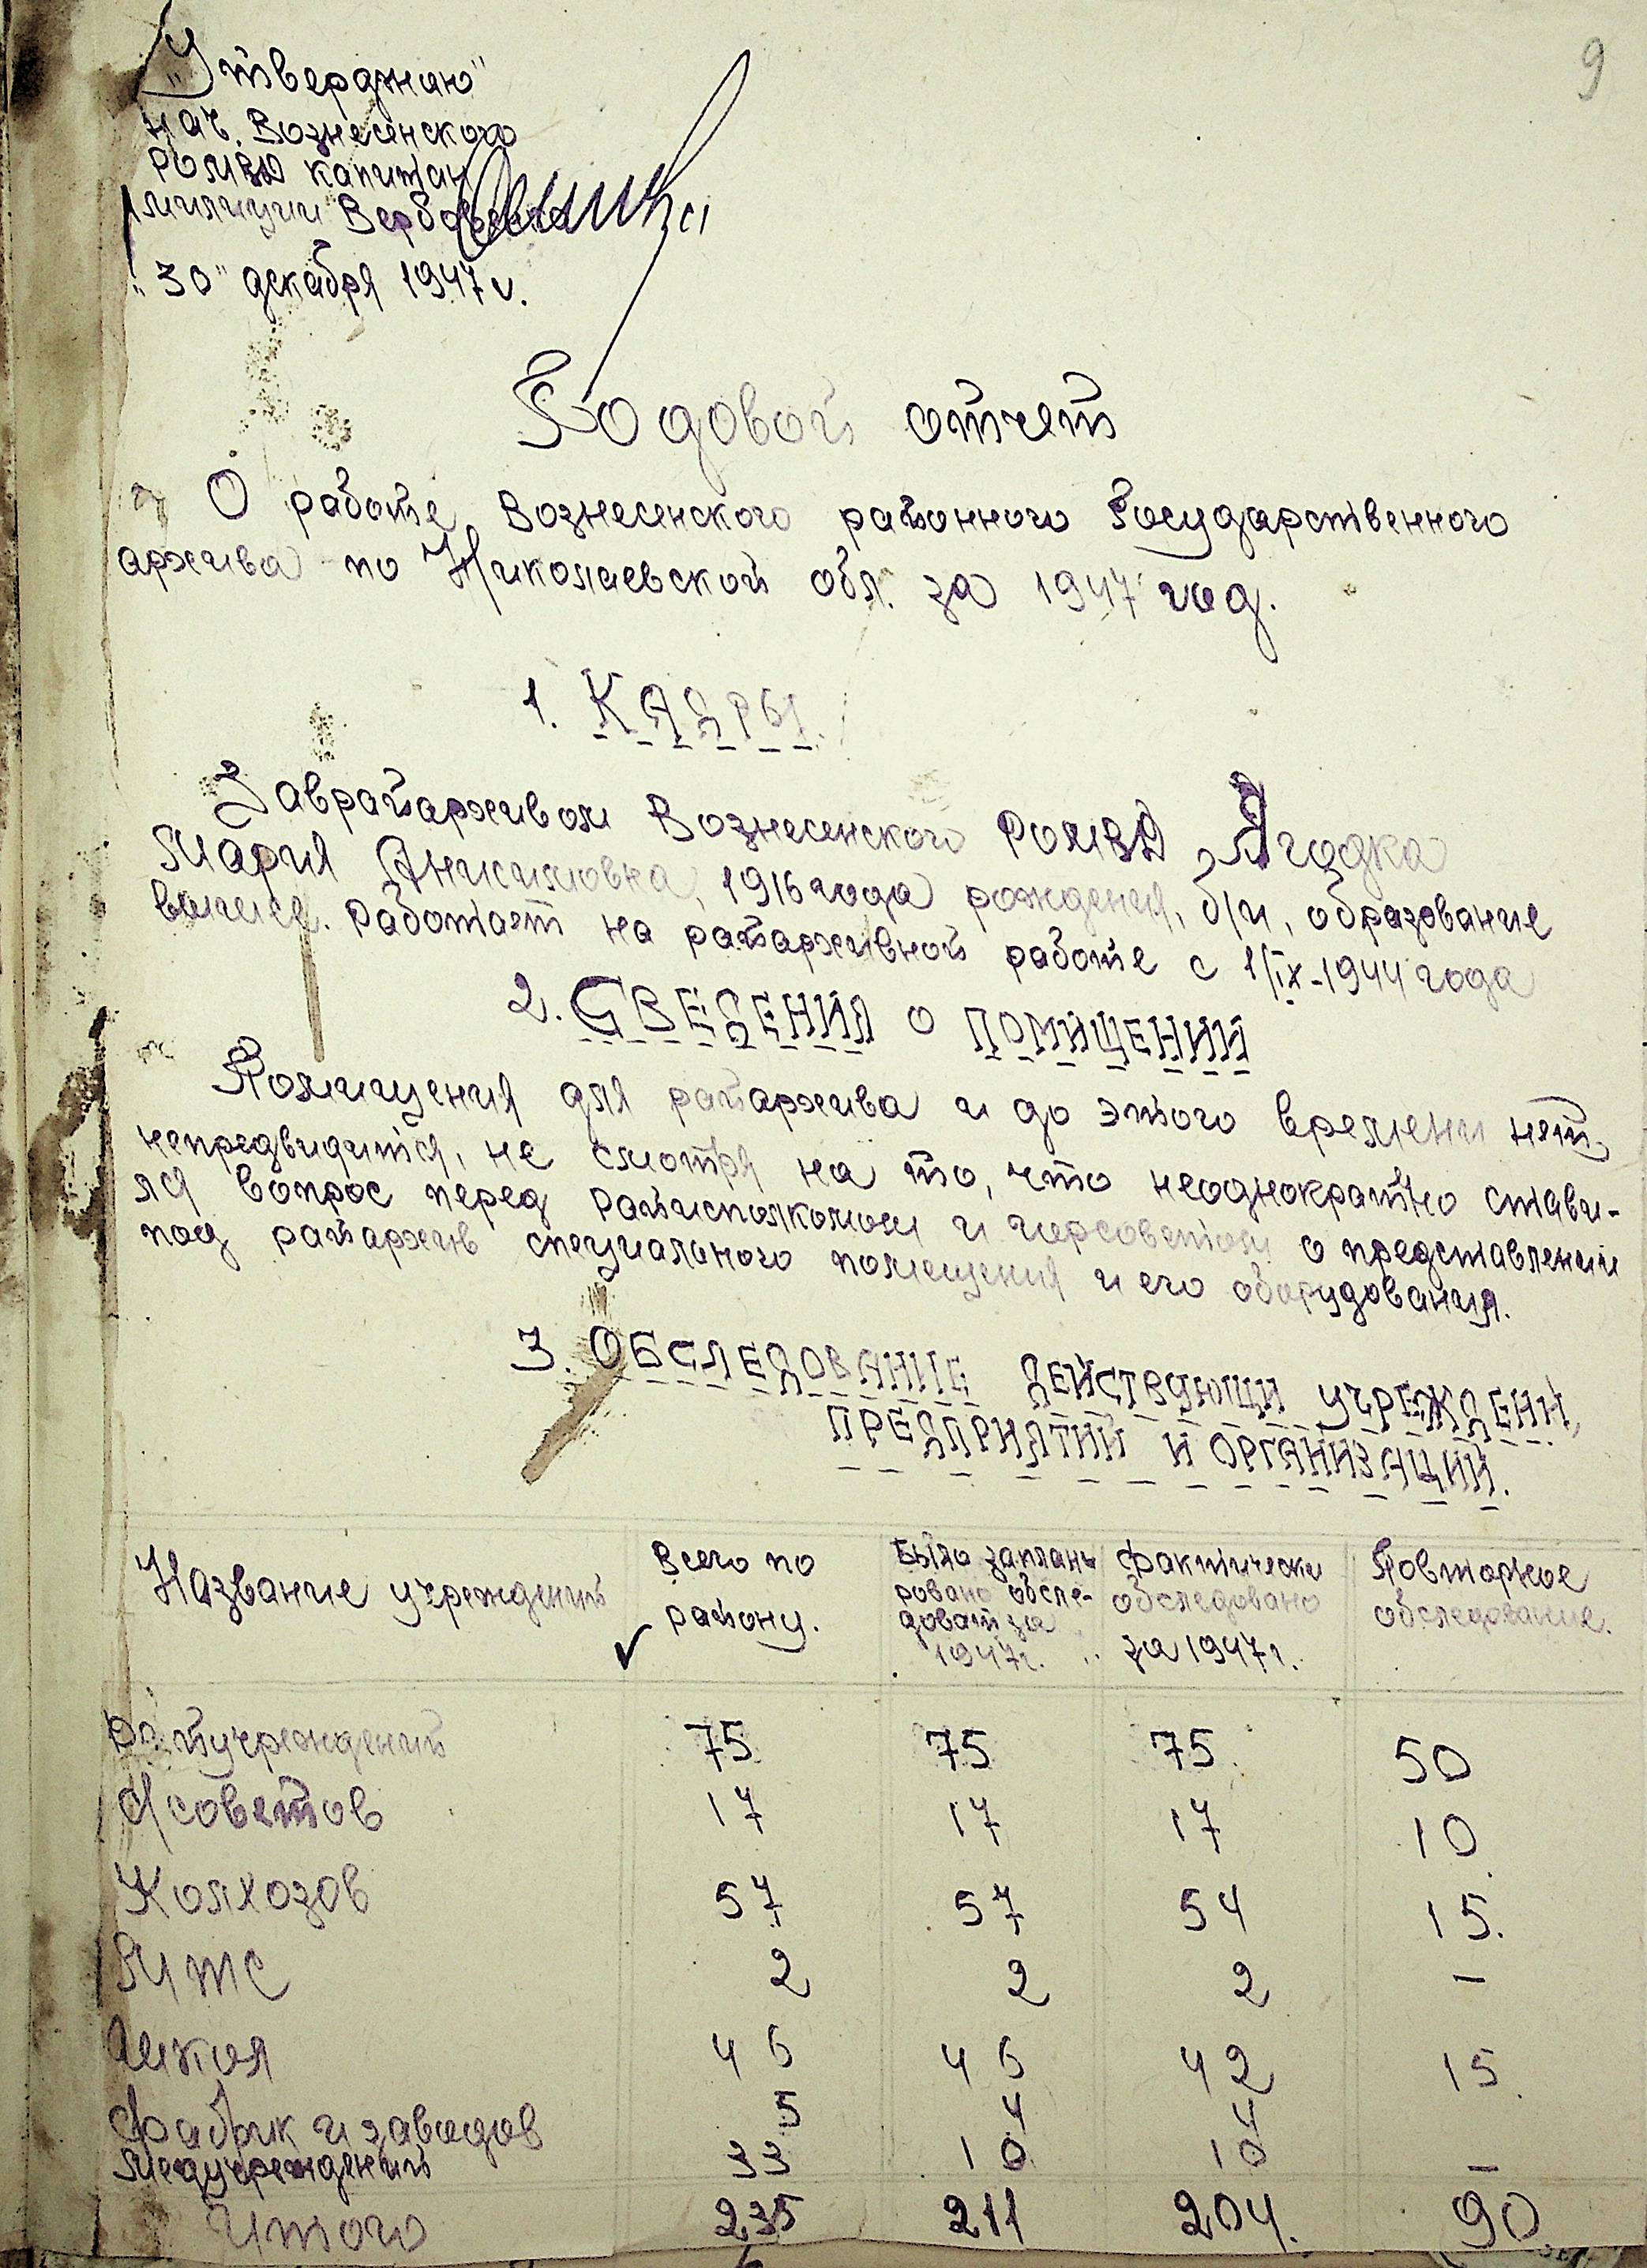 9
"Утверждаю"
нач. Вознесенского
РОМВД капитан
милиции
"30" декабря 1947 г.
Годовой отчет
О работе Вознесенского районного Государственного
архива по Николаевской обл. за 1947 год.
1. КАДРЫ.
Заврайархивом Вознесенского РОМВД, Ягодка
Мария Анисимовна, 1916 года рождения, б/п, образование
высшее. Работает на райархивной работе с 1/IX-1944 года
2. СВЕДЕНИЯ о ПОМИЩЕНИИ
Помищения для райархива и до этого времени нет,
непредвидится, не смотря на то, что неоднократно стави-
ля вопрос перед Райисполкомом и горсоветом о представлении
под райархив специального помещения и его оборудования.
3. ОБСЛЕДОВАНИЕ ДЕЙСТВУЮЩИ УЧРЕЖДЕНИ,
ПРЕДПРИЯТИИ И ОРГАНИЗАЦИЙ.
Название учреждений Всего по району. Было заплани ровано обсле- доват за 1947г. Фактически обследовано за 1947г. Повторное обследование.
Райучреждений 75 75 75 50
С/советов 17 17 17 10
Колхозов 57 57 54 15.
МТС 2 2 2 –
Школ 46 46 42 15.
Фабрик и заводов 5 4 4
Медучреждений 33 10 10 –
Итого 235 211 204. 90